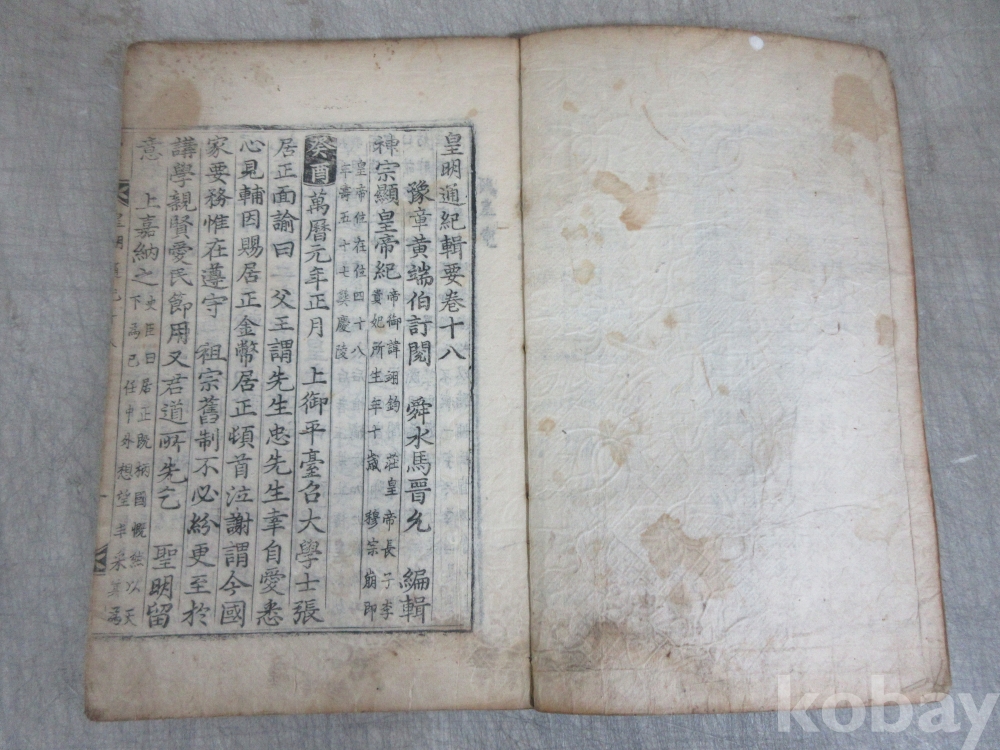 皇明通紀輯要卷十八
豫章黃端伯訂閱　舜水馬晉允　編輯
神宗顯皇帝紀
帝御諱翊鈞　莊皇帝長子李
貴妃所生年十歲　穆宗崩即
皇帝位在位四十八
年壽五十七葬慶陵
癸酉萬曆元年正月　上御平臺召大學士張
居正面諭曰　父王謂先生忠先生幸自愛悉
心見輔因賜居正金幣居正頓首泣謝謂今國
家要務惟在遵守　祖宗舊制不必紛更至於
講學親賢愛民節用又君道所先乞　聖明留
意　上嘉納之
史臣曰居正既柄國慨然以天
下爲己任中外想望丰采其爲
kobay